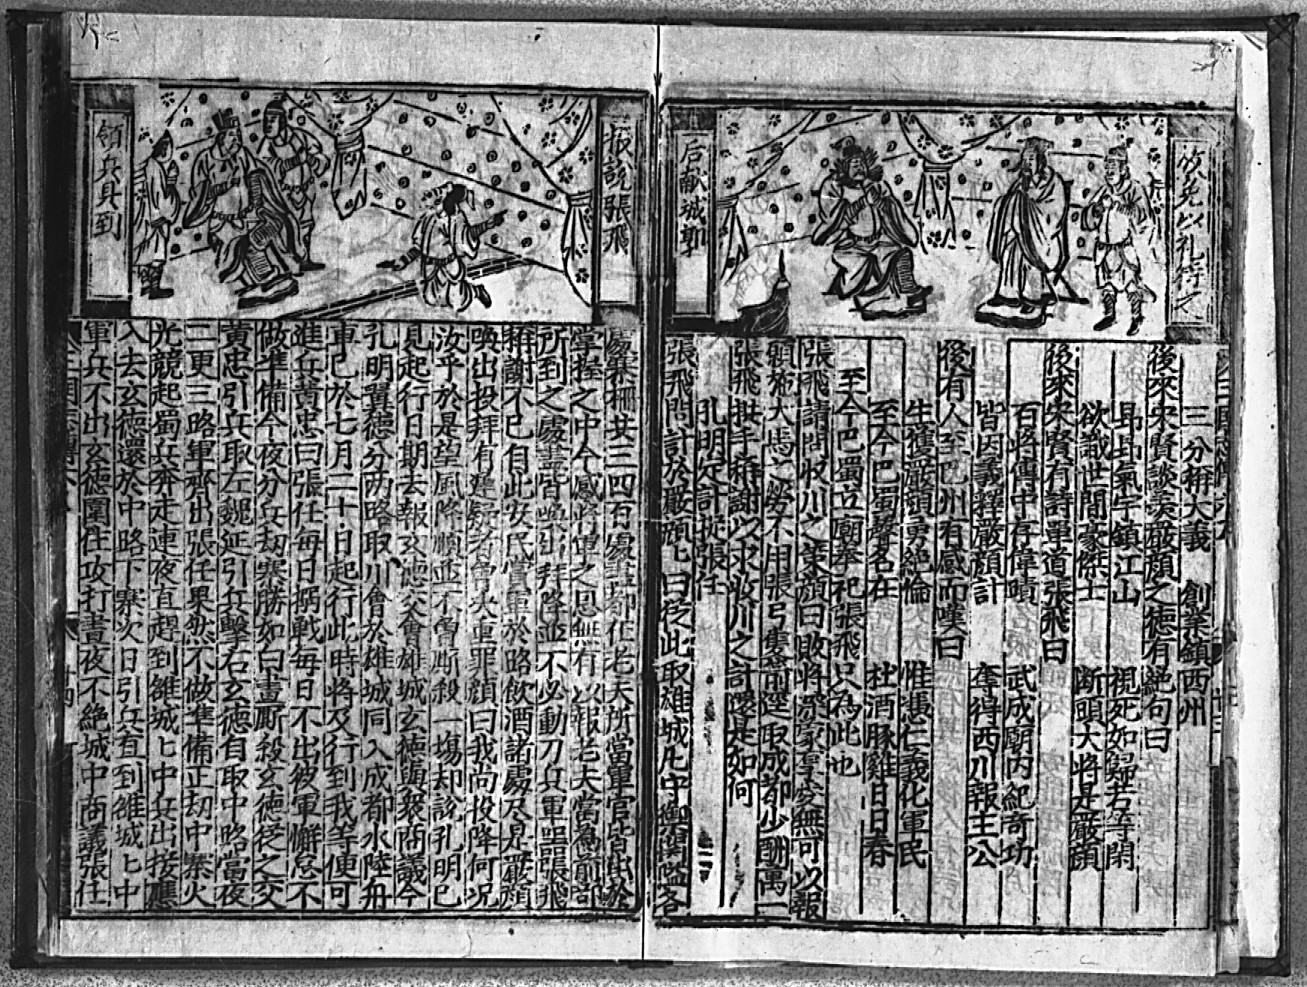 放免以礼待之
后献城郭
三分稱大義　創業鎮西州
後來宋賢談美嚴顔之德有絕句曰
昻昻氣宇鎮江山　視死如歸若等閑
欲識世間豪傑士　断頭大將是嚴顔
後來宋賢有詩單道張飛曰
百將傳中存偉蹟　武成廟内紀竒功
皆因義釋嚴顔計　奪得西川報主公
後有人至巴州有感而嘆曰
生獲嚴顔勇絕倫　惟憑仁義化軍民
至今巴蜀聲名在　杜酒豚雞日日春
至今巴蜀立廟奉祀張飛只為此也
張飛請問收川之策顔曰敗將家厚恩無可以報
願施犬馬之勞不用張弓隻箭逕取成都少酬萬一
張飛拱手稱謝以求收川之計還是如何
孔明定計捉張任
張飛問計於嚴顔曰從此取雄城凡中御關隘各
報說張飛
領兵具到
處寨柵共三四百處
掌握之中今感將軍之恩無有以報老夫當為前部
所到之處盡皆喚出拜降並不必動刀兵軍器張飛
稱謝不已自此安民賞軍於路飲酒諸處尽是嚴顔
喚出投拜有遲疑者曾失重罪顔曰我尚投降何况
汝乎於是望風降順並不曾厮殺一塲却說孔明已
見起行日期去報玄德交會雄城玄德與衆商議今
孔明翼德分两路取川會於雄城同入成都水陸舟
車已於七月二十日起行此時將及行到我等便可
進兵黃忠曰張任每日搦戰每日不出彼軍懈怠不
做準備今夜分兵刼寨勝如白晝厮殺玄德從之交
黃忠引兵取左魏延引兵擊右玄德自取中路當夜
二更三路軍齊出張任果然不做準備正刼中寨火
光競起蜀兵奔走連夜直趕到雒城匕中兵出接應
入去玄德還於中路下寨次日引兵有到雒城匕中
軍兵不出玄德圍住攻打晝夜不絕城中商議張任